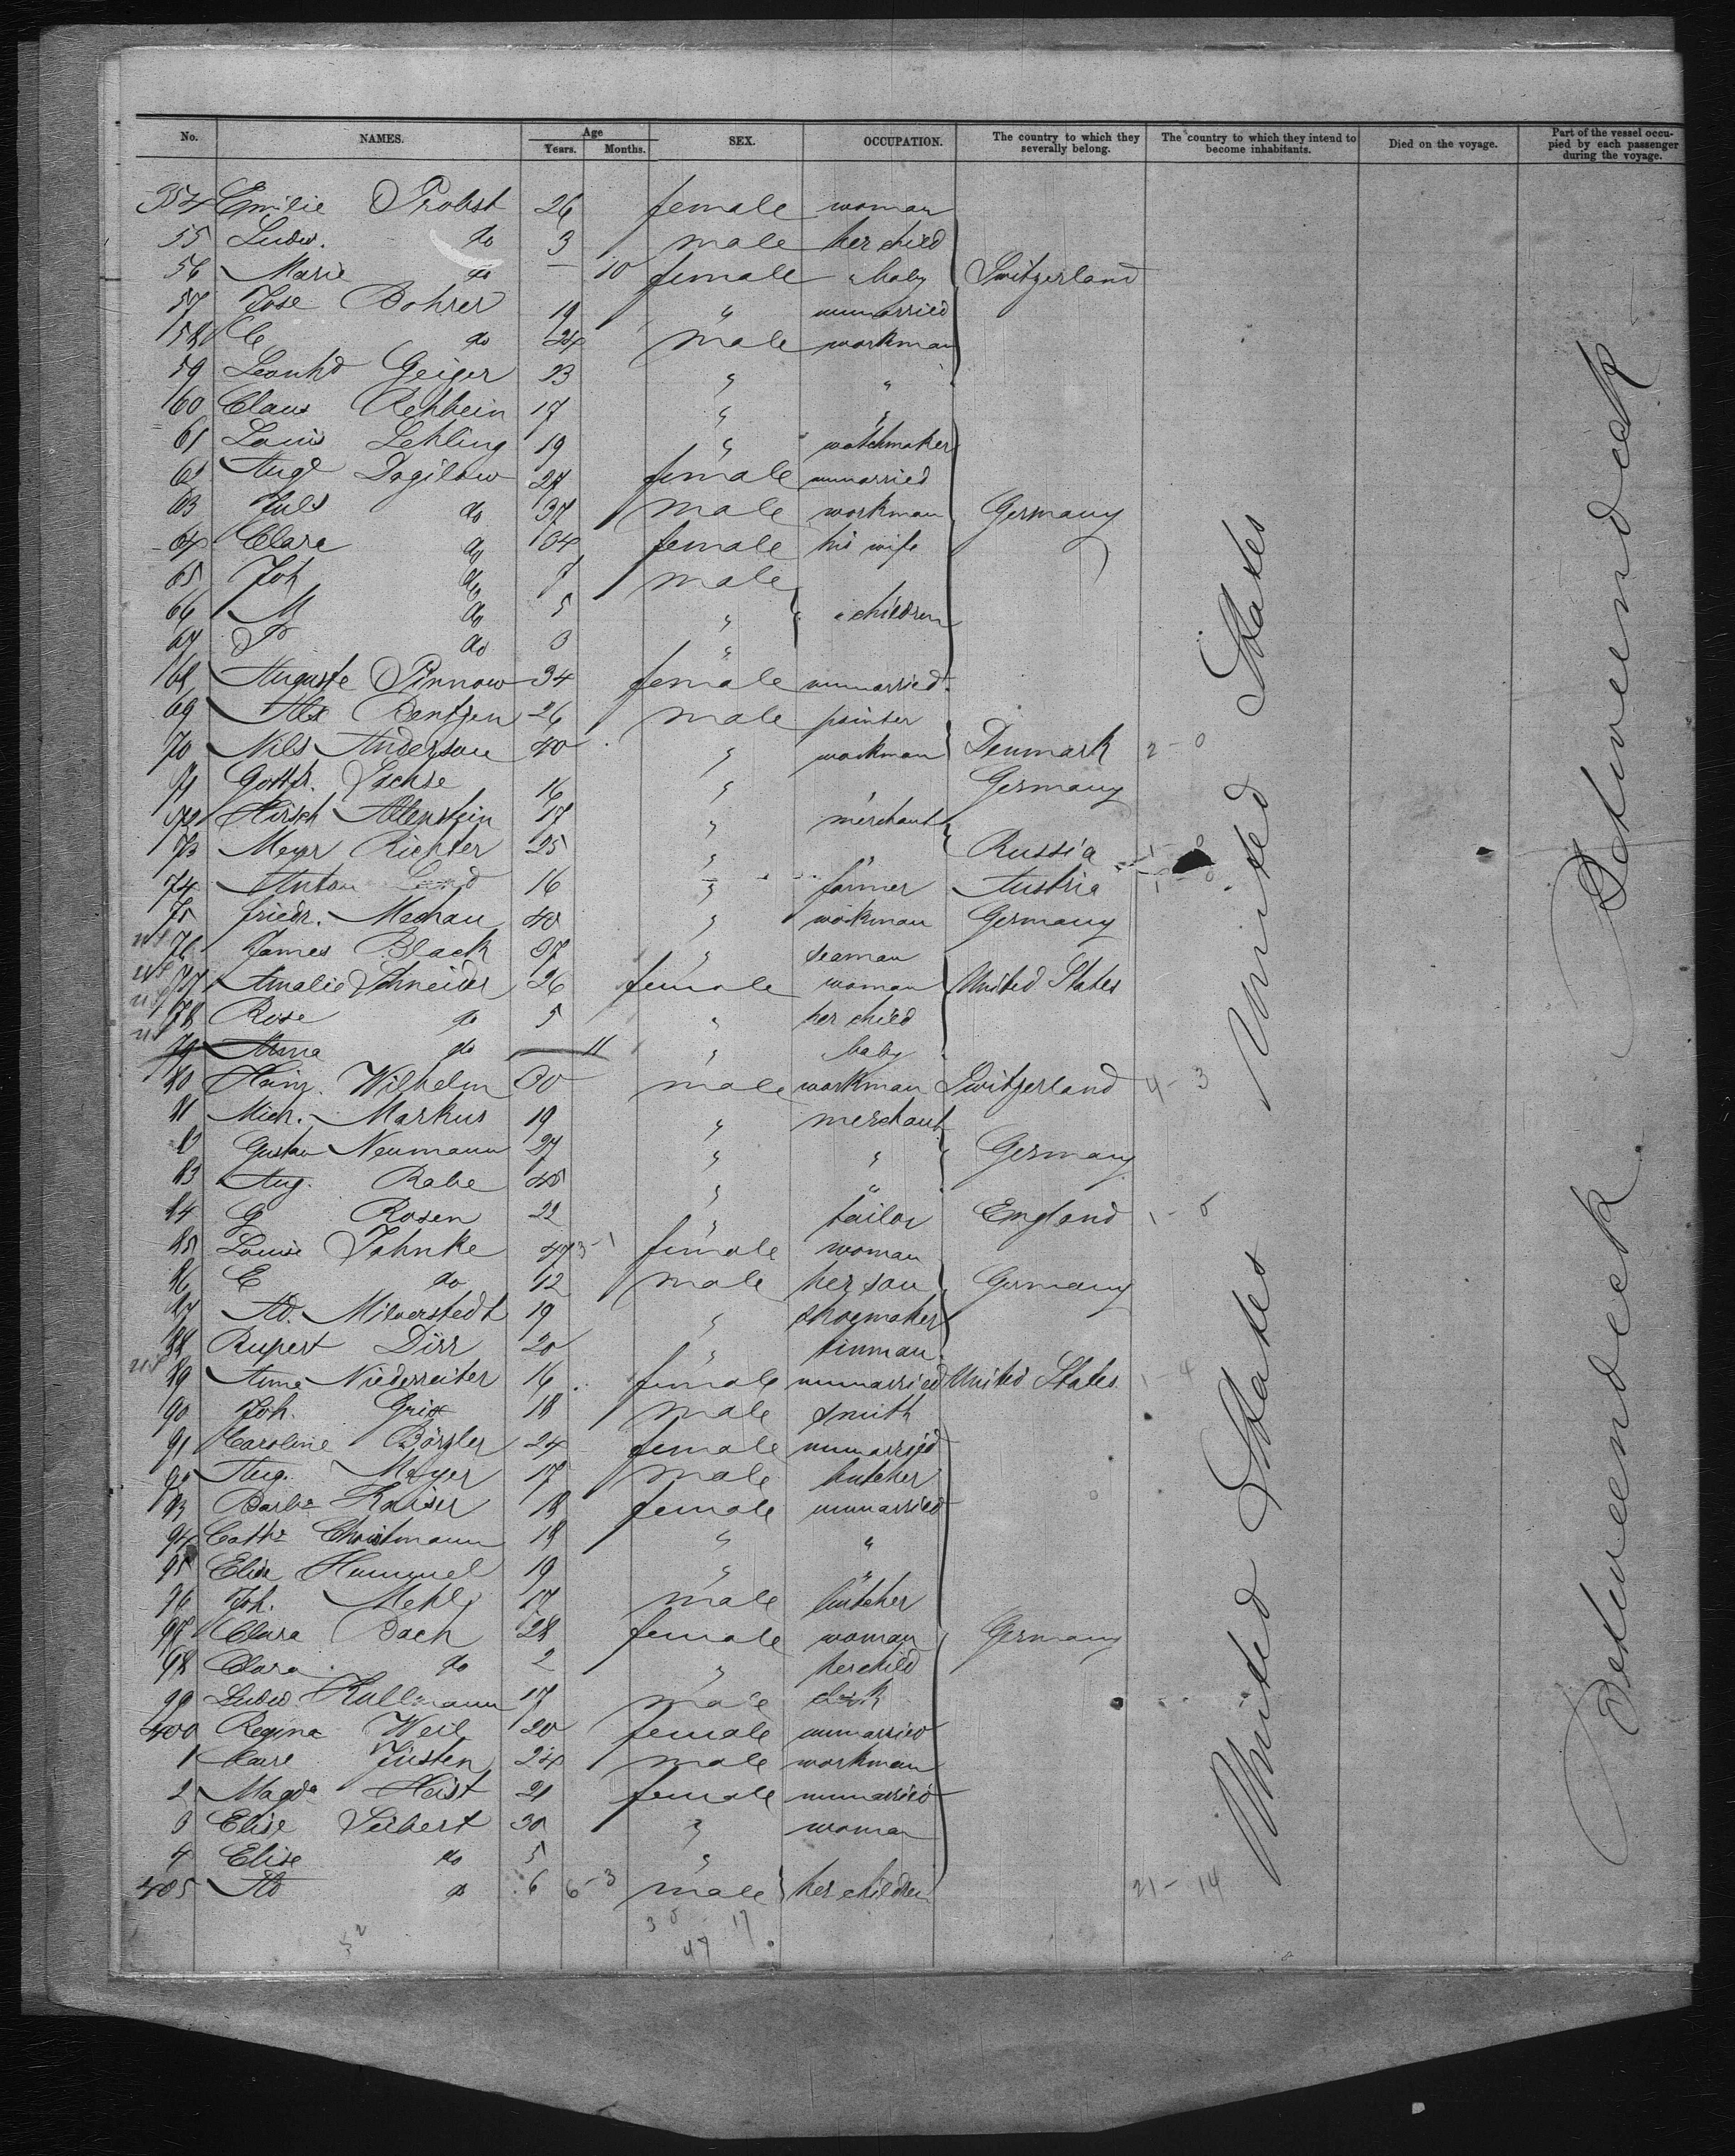 No. NAMES. Age Years. Months. SEX. OCCUPATION. The country to which they severally belong. The country to which they intend to become inhabitants. Died on the voyage. Part of the vessel occupied by each passenger during the voyage.
354 Emilie Probst 26 female woman
55 Ludw. do 3 male her child
56 Marie do — 10 female baby Switzerland
57 Rohrer 19 " unmarried
58 C do 24 male workman
59 Leonhd Geiger 23 " "
60 Claus Rehbein 17 " "
61 Louis Lehling 19 " watchmaker
62 Aug. Dogilow 27 female unmarried
63 Juls do 37 male workman Germany
64 Clara do 34 female his wife
65 Joh do 7 male
66 M do 5 " children
67 P do 3 "
68 Auguste Pinnow 34 female unmarried
69 Alex Bentzen 26 male painter
70 Nils Anderson 40 " workman Denmark 2 - 0
71 Gottfr. Sachse 16 " " Germany
72 Hirsch Allenstein 17 " merchant
73 Meyer Richter 25 " " Russia
74 Anton 16 " farmer Austria
75 Friedr. Mechau 40 " workman Germany
76 James Black 37 " seaman
77 Amalie Schneider 26 female woman United States
78 Rose do 5 " her child
79 Anna do — 11 " baby
80 Heinr. Wilhelm 30 male workman Switzerland 4 - 3
81 Mich. Markus 19 " merchant
82 Gustav Neumann 27 " " Germany
83 Aug. Rabe 40 " "
84 G Rosen 22 " tailor England 1 - 0
85 Louise Jahnke 47 female woman
86 E do 12 male her son Germany
87 Ad. Milverstedt 19 " shoemaker
88 Rupert Dirr 20 " tinman
89 Anna Niederreiter 16 female unmarried United States
90 Joh. 18 male smith
91 Caroline 24 female unmarried
92 Aug. Meyer 17 male butcher
93 Barba Kaiser 18 female unmarried
94 Cathe Christmann 18 " "
95 Elise Hummel 19 " "
96 Joh. Mehl 17 male butcher
97 Clara Bach 28 female woman Germany
98 Clara do 2 " her child
99 Ludw. Kullmann 17 male clerk
400 Regina Weil 20 female unmarried
1 Carl Justen 24 male workman
2 Magda Heist 21 female unmarried
3 Elise Seibert 30 " woman
4 Elise do 5 "
405 Ad do 6 6-3 male her children 21 - 14
47
United States
United States
Betweendeck
Betweendeck